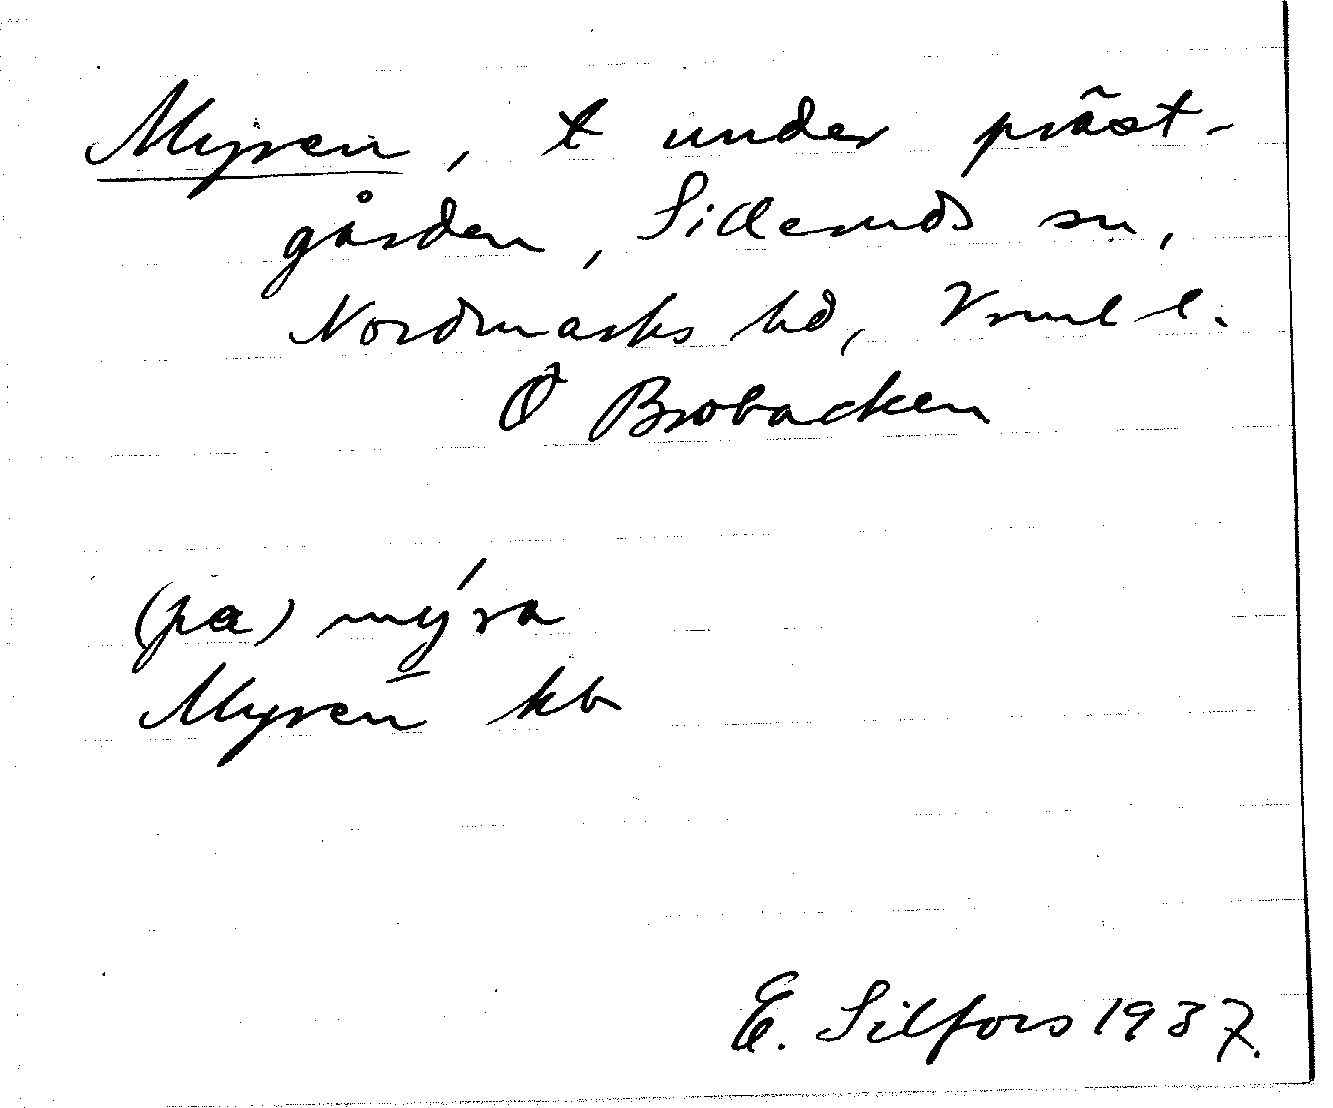 Myren, t under präst-
gården, Silleruds sn,
Nordmarks hd, Vrml l.
Ö Brobacken
(pa) mýra
Myren kb
E. Silfors 1937.